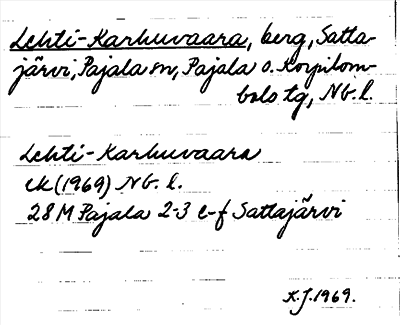 Lehti-Karhuvaara, berg, Satta-
järvi, Pajala sn, Pajala o. Korpilom-
bolo tg, Nb. l.
Lehti-Karhuvaara
ek (1969) Nb. l.
28 M Pajala 2-3 e-f Sattajärvi
K.J. 1969.